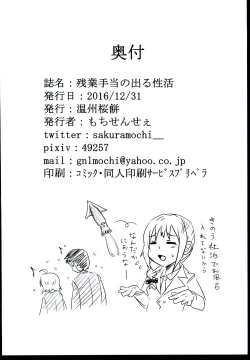 奥付
誌名：残業手当の出る性活
発行日：2016/12/31
発行：温州桜餅
発行者：もちせんせぇ
twitter：sakuramochi__
pixiv：49257
mail：gnlmochi@yahoo.co.jp
印刷：ｺﾐｯｸ・同人印刷ｻｰﾋﾞｽﾌﾟﾘﾍﾟﾗ
きのう社泊でお風呂
入れてないから
なんだか
におうな…